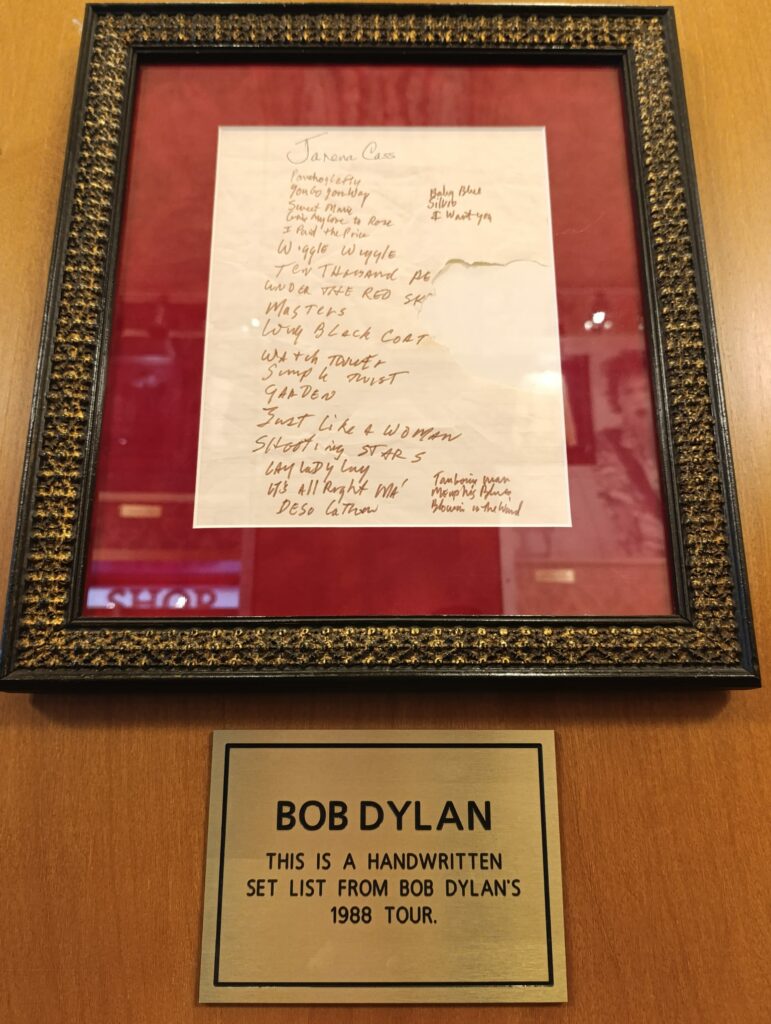 Janena Cass
Pancho & Lefty
You Go Your Way
Sweet Marie
Give My Love to Rose
I Paid the Price
Wiggle Wiggle
Ten Thousand Me
Under the Red Sk
Masters
Long Black Coat
Watch Tower
Simple Twist
Garden
Just Like a Woman
Shooting Stars
Lay Lady Lay
It's All Right Ma'
Baby Blue
Silvio
I Want You
Tambourine man
Memphis Blues
Blowin in the Wind
SHOP
BOB DYLAN
THIS IS A HANDWRITTEN
SET LIST FROM BOB DYLAN'S
1988 TOUR.